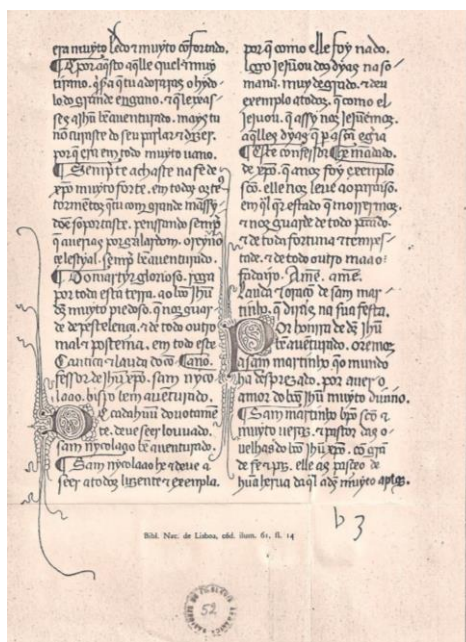 era muyto ledo & muyto cõfortado.
por aq̃sto aq̃lle quel muy
tirano. q̃ria q̃ tu adorasas o hydo
lo do grande engano. & q̃ leyxas
ses a ihũ bẽauenturado. mays tu
nõ curaste do seu parlar & dizer.
por q̃ era em todo muyto uano.
Sempre achaste na fe de
xp̃o muyto forte. em todos os
tormentos q̃ tu com grande
soportaste. pensando semp̃
q̃ auerias por galardom. o reyno
celestyal. semp̃ bẽauenturado.
O martyr glorioso. roga
por toda esta terra. ao bõ ihũ
muy piedoso. q̃ nos guar
de de pestelença. & de todo outro
mal & postema. em todo este
Cantica & lauda do cõ
fessor de ihũ xp̃o. sam nyco
laao. bispo bem auẽturado.
Cadahuũ deuotamẽ
te. deue seer louuado.
sam nycolago bẽauenturado.
Sam nycolaao he & deue a
seer a todos luzente & exempla.
por q̃ como elle foy nado.
logo jeiũou dos dyas na so
mana. muy de grado. & deu
exemplo a todos. q̃ como el
jeiuou. q̃ assy nos jeiũemos.
aq̃lles dyas q̃
Este confessor
de xp̃o. q̃ nos foy exemplo
scõ. elle nos leue ao paraiso.
em q̃l q̃r estado q̃ morremos.
& nos guarde de todo pecado.
& de toda fortuna & tempes
tade. & de todo outro maao
fadayro. Amẽ. amẽ.
Lauda & oraçõ de sam mar
tinho. q̃ diras na sua festa.
Por honrra de ds̃ ihũ
bẽ auẽturado. oremos
a sam martinho q̃ o mundo
ha desprezado. por auer o
amor do bõ ihũ muyto diuino.
Sam martinho bp̃o scõ &
muyto & pastor das o
uelhas do bõ ihũ xp̃o. cõ grã
de fe & elle as pasceo de
hũa herua da q̃l a ds̃ muyto
b 3
Bibl. Nac. de Lisboa, cód. ilum. 61, fl. 14
52